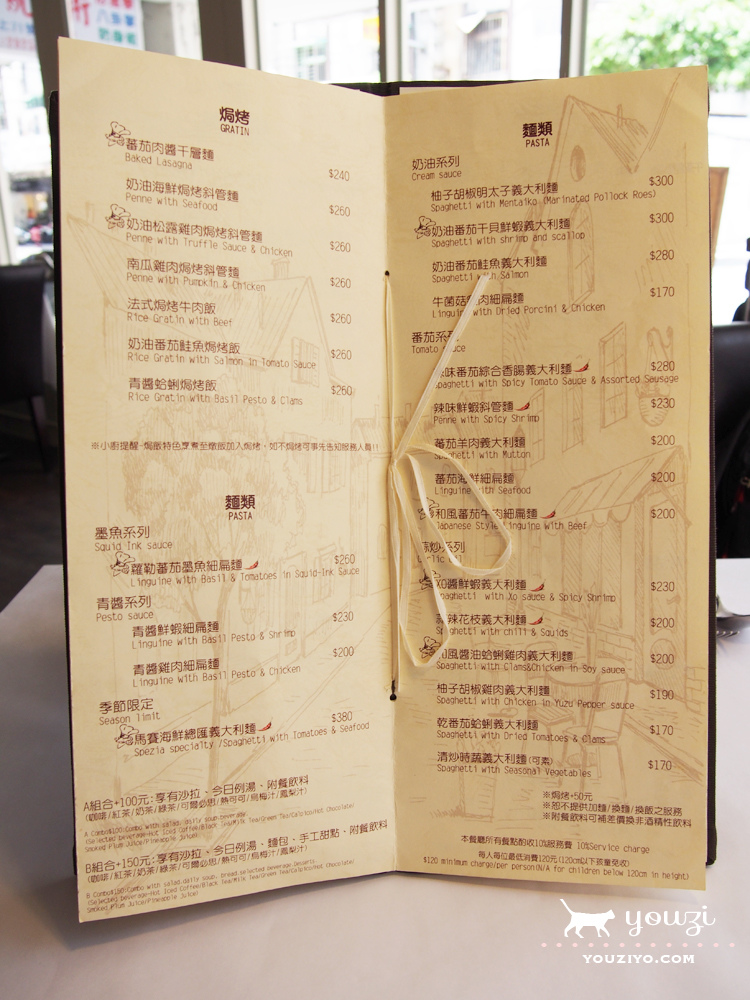 焗烤
GRATIN
蕃茄肉醬千層麵
Baked Lasagna $240
奶油海鮮焗烤斜管麵
Penne with Seafood $260
奶油松露雞肉焗烤斜管麵
Penne with Truffle Sauce & Chicken $260
南瓜雞肉焗烤斜管麵
Penne with Pumpkin & Chicken $260
法式焗烤牛肉飯
Rice Gratin with Beef $260
奶油番茄鮭魚焗烤飯
Rice Gratin with Salmon in Tomato Sauce $260
青醬蛤蜊焗烤飯
Rice Gratin with Basil Pesto & Clams $260
麵類
PASTA
墨魚系列
Squid Ink sauce
蘿勒蕃茄墨魚細扁麵 $260
Linguine with Basil & Tomatoes in Squid-Ink Sauce
青醬系列
Pesto sauce
青醬鮮蝦細扁麵 $230
Linguine with Basil Pesto & Shrimp
青醬雞肉細扁麵 $200
Linguine with Basil Pesto & Chicken
季節限定
Season limit
馬賽海鮮總匯義大利麵 $380
Spezia specialty /Spaghetti with Tomatoes & Seafood
A組合+100元:享有沙拉、今日例湯、附餐飲料
(咖啡/紅茶/奶茶/綠茶/可爾必思/熱可可/烏梅汁/鳳梨汁)
B組合+150元:享有沙拉、今日例湯、麵包、手工甜點、附餐飲料
(咖啡/紅茶/奶茶/綠茶/可爾必思/熱可可/烏梅汁/鳳梨汁)
Smoked Plum Juice/Pineapple Juice)
麵類
PASTA
奶油系列
Cream sauce
柚子胡椒明太子義大利麵 $300
Spaghetti with Mentaiko (Marinated Pollock Roes)
奶油番茄干貝鮮蝦義大利麵 $300
Spaghetti with shrimp and scallop
奶油番茄鮭魚義大利麵 $280
Spaghetti with Salmon
牛菌菇 肉細扁麵 $170
Linguine with Dried Porcini & Chicken
番茄系列
Tomato Sauce
味番茄綜合香腸義大利麵 $280
Spaghetti with Spicy Tomato Sauce & Assorted Sausage
辣味鮮蝦斜管麵 $230
Penne with Spicy Shrimp
番茄羊肉義大利麵 $200
Spaghetti with Mutton
番茄海鮮細扁麵 $200
Linguine with Seafood
和風蕃茄牛肉細扁麵 $200
Japanese Style Linguine with Beef
蒜炒系列
Garlic Oil
XO醬鮮蝦義大利麵 $230
Spaghetti with Xo sauce & Spicy Shrimp
蒜辣花枝義大利麵 $200
Spaghetti with chili & Squids
和風醬油蛤蜊雞肉義大利麵 $200
Spaghetti with Clams&Chicken in Soy sauce
柚子胡椒雞肉義大利麵 $190
Spaghetti with Chicken in Yuzu Pepper sauce
乾番茄蛤蜊義大利麵 $170
Spaghetti with Dried Tomatoes & Clams
清炒時蔬義大利麵(可素) $170
Spaghetti with Seasonal Vegetables
※焗烤+50元
※恕不提供加麵/換麵/換飯之服務
※附餐飲料可補差價換非酒精性飲料
本餐廳所有餐點酌收10%服務費 10%Service charge
每人每位最低消費120元(120cm以下孩童免收)
$120 minimum charge/per person(N/A for children below 120cm in height)
youzi
YOUZIYO.COM